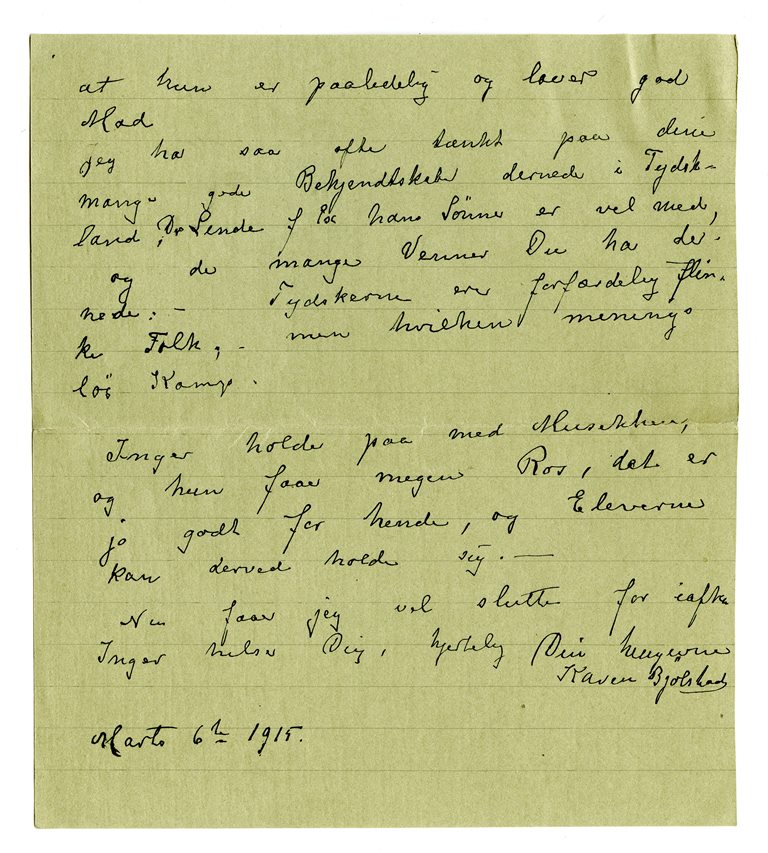 at hun er paalidelig og laver god
Mad
jeg ha saa ofte tænkt paa dine
mange gode Bekjendtskabe dernede i Tydsk-
land, Dr Linde f Ex hans Sönner er vel med,
og de mange Venner Du ha der-
nede: - Tydskerne er forfærdelig flin-
ke Folk, - men hvilken menings
lös Kamp.
Inger holde paa med Musikken,
og hun faar megen Ros, det er
jo godt for hende, og Eleverne
kan derved holde sig. —
Nu faar jeg vel slutte for iaften
Inger hilser Dig, hjertelig Din hengivne
Karen Bjölstad
Marts 6te 1915.